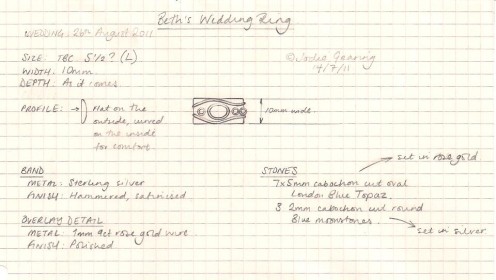 Beth's Wedding Ring
WEDDING: 26th August 2011
©Jodie Gearing
4/7/11
SIZE: TBC 5 1/2? (L)
WIDTH: 10mm
DEPTH: As it comes
PROFILE: → Flat on the
outside, curved
on the inside
for comfort.
10mm wide.
BAND
METAL: Sterling silver
FINISH: Hammered, satinised
OVERLAY DETAIL
METAL: 1mm 9ct rose gold wire
FINISH: Polished
STONES
set in rose gold
7x5mm cabochon cut oval
London Blue Topaz
3 2mm cabochon cut round
Blue moonstones.
set in silver